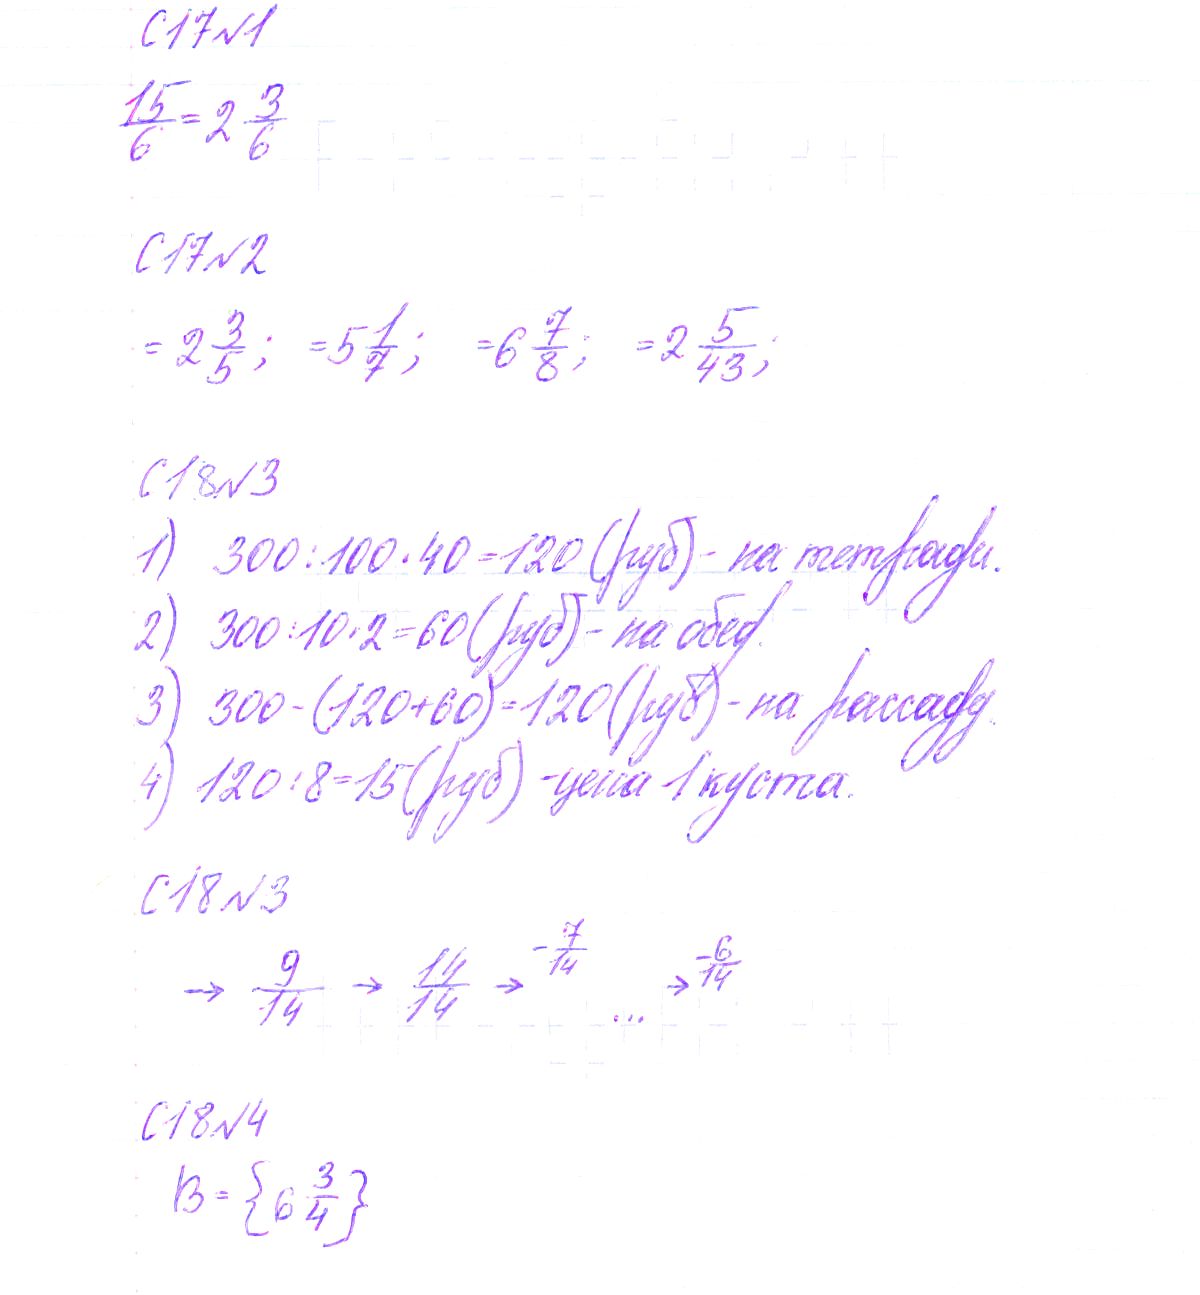 С17№1
15/6 = 2 3/6
С17№2
= 2 3/5; = 5 1/7; = 6 7/8; = 2 5/43;
С18№3
1) 300:100·40=120(руб)- на тетради.
2) 300:10·2=60(руб)- на обед.
3) 300-(120+60)=120(руб)- на рассаду.
4) 120:8=15(руб) -цена 1 куста.
С18№3
→ 9/14 → 14/14 → -7/14 ... → -6/14
С18№4
В = {6 3/4}